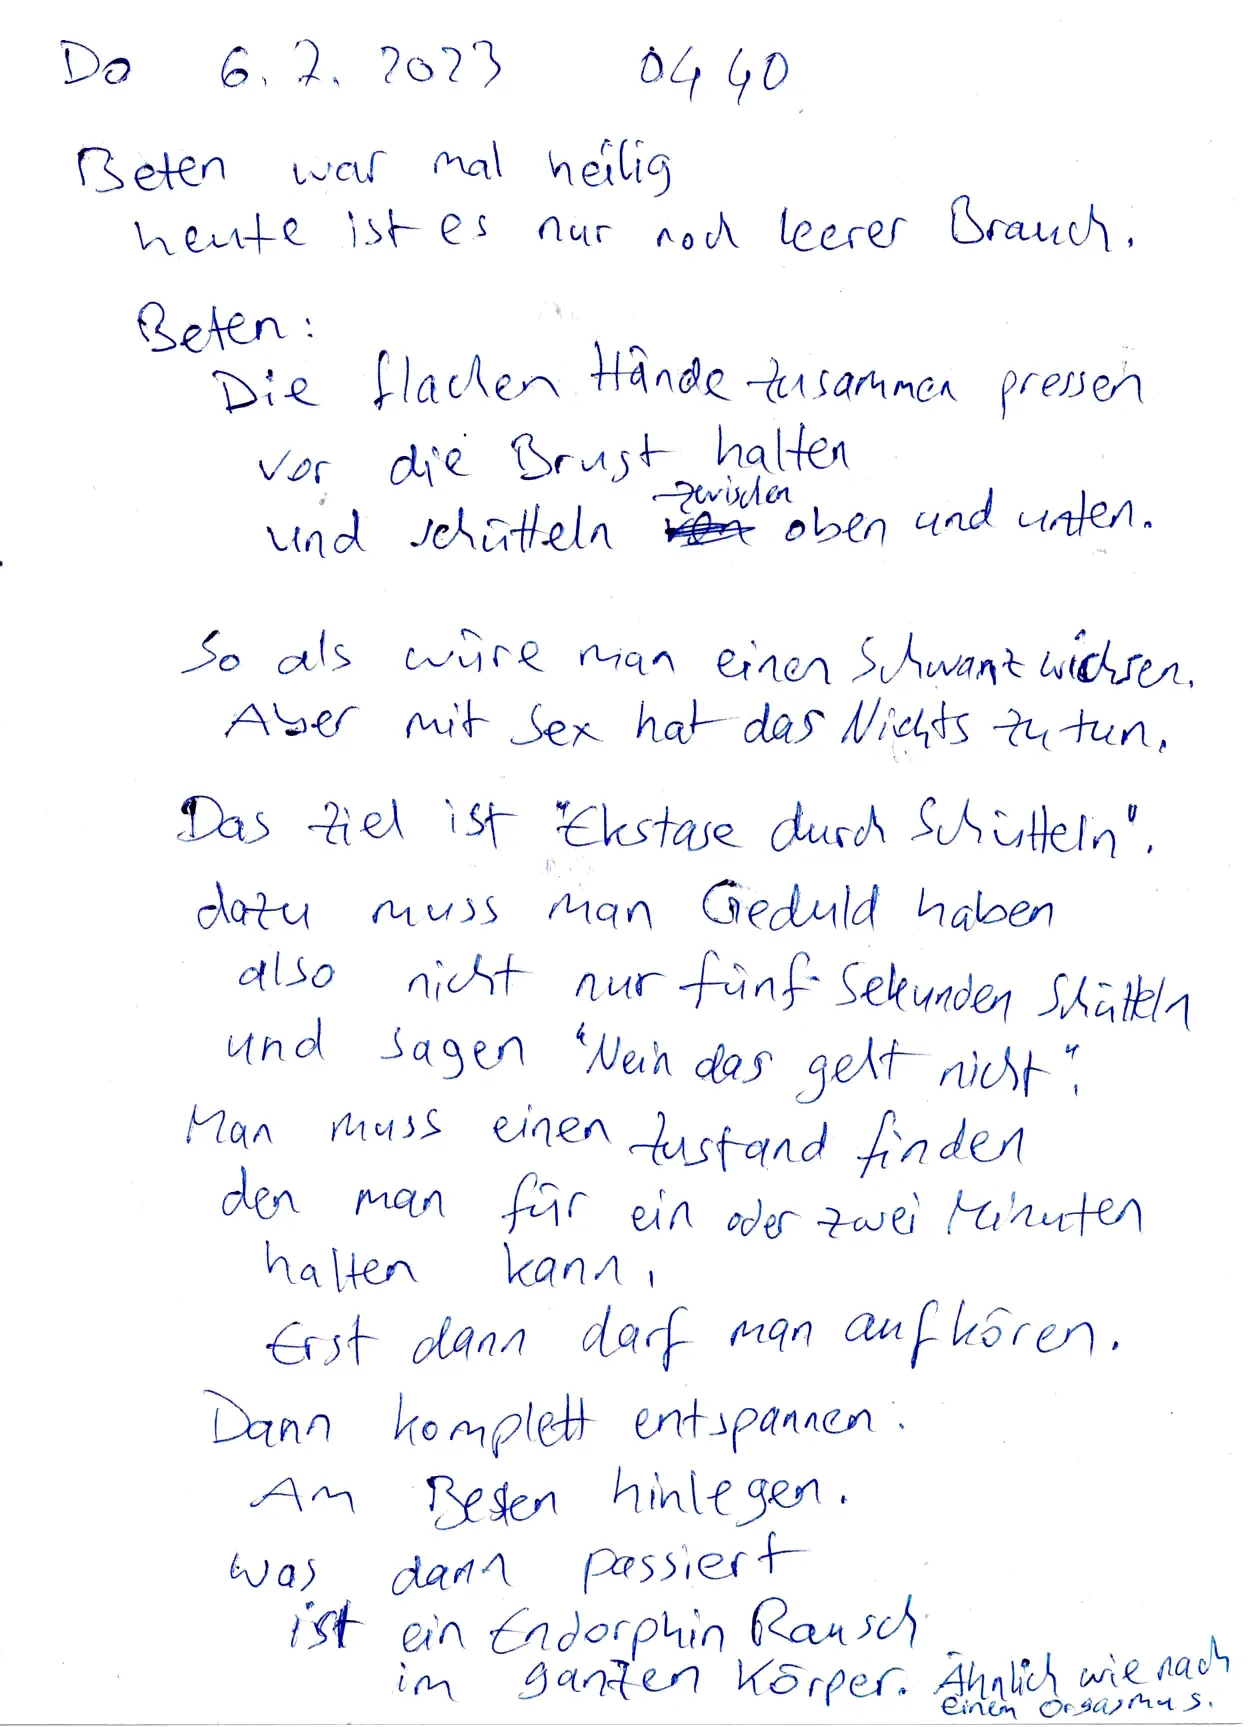 Do 6. 7. 2023 0440
Beten war mal heilig
heute ist es nur noch leerer Brauch.
Beten:
Die flachen Hände zusammen pressen
vor die Brust halten
und schütteln zwischen oben und unten.
So als würe man einen Schwanz wichsen.
Aber mit Sex hat das Nichts zu tun.
Das Ziel ist "Ekstase durch Schütteln".
dazu muss man Geduld haben
also nicht nur fünf Sekunden Schütteln
und sagen "Nein das geht nicht".
Man muss einen Zustand finden
den man für ein oder zwei Minuten
halten kann,
Erst dann darf man aufhören.
Dann komplett entspannen.
Am Besten hinlegen.
was dann passiert
ist ein Endorphin Rausch
im ganzen Körper. Ähnlich wie nach
einem Orgasmus.